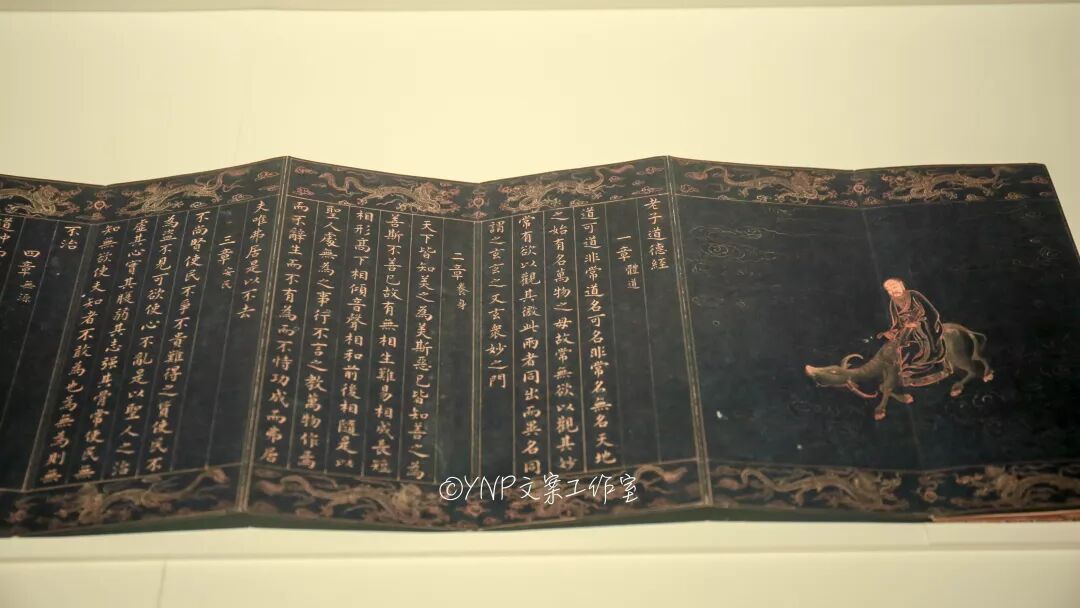 老子道德經
一章 體道
道可道非常道名可名非常名無名天地
之始有名萬物之母故常無欲以觀其妙
常有欲以觀其徼此兩者同出而異名同
謂之玄玄之又玄衆妙之門
二章 養身
天下皆知美之為美斯惡已皆知善之為
善斯不善已故有無相生難易相成長短
相形髙下相傾音聲相和前後相隨是以
聖人處無為之事行不言之教萬物作焉
而不辭生而不有為而不恃功成而弗居
夫唯弗居是以不去
三章 安民
不尚賢使民不爭不貴難得之貨使民不
為盗不見可欲使心不亂是以聖人之治
虛其心實其腹弱其志强其骨常使民無
知無欲使夫知者不敢為也為無為則無
不治
四章 無源
道沖而
©YNP文案工作室